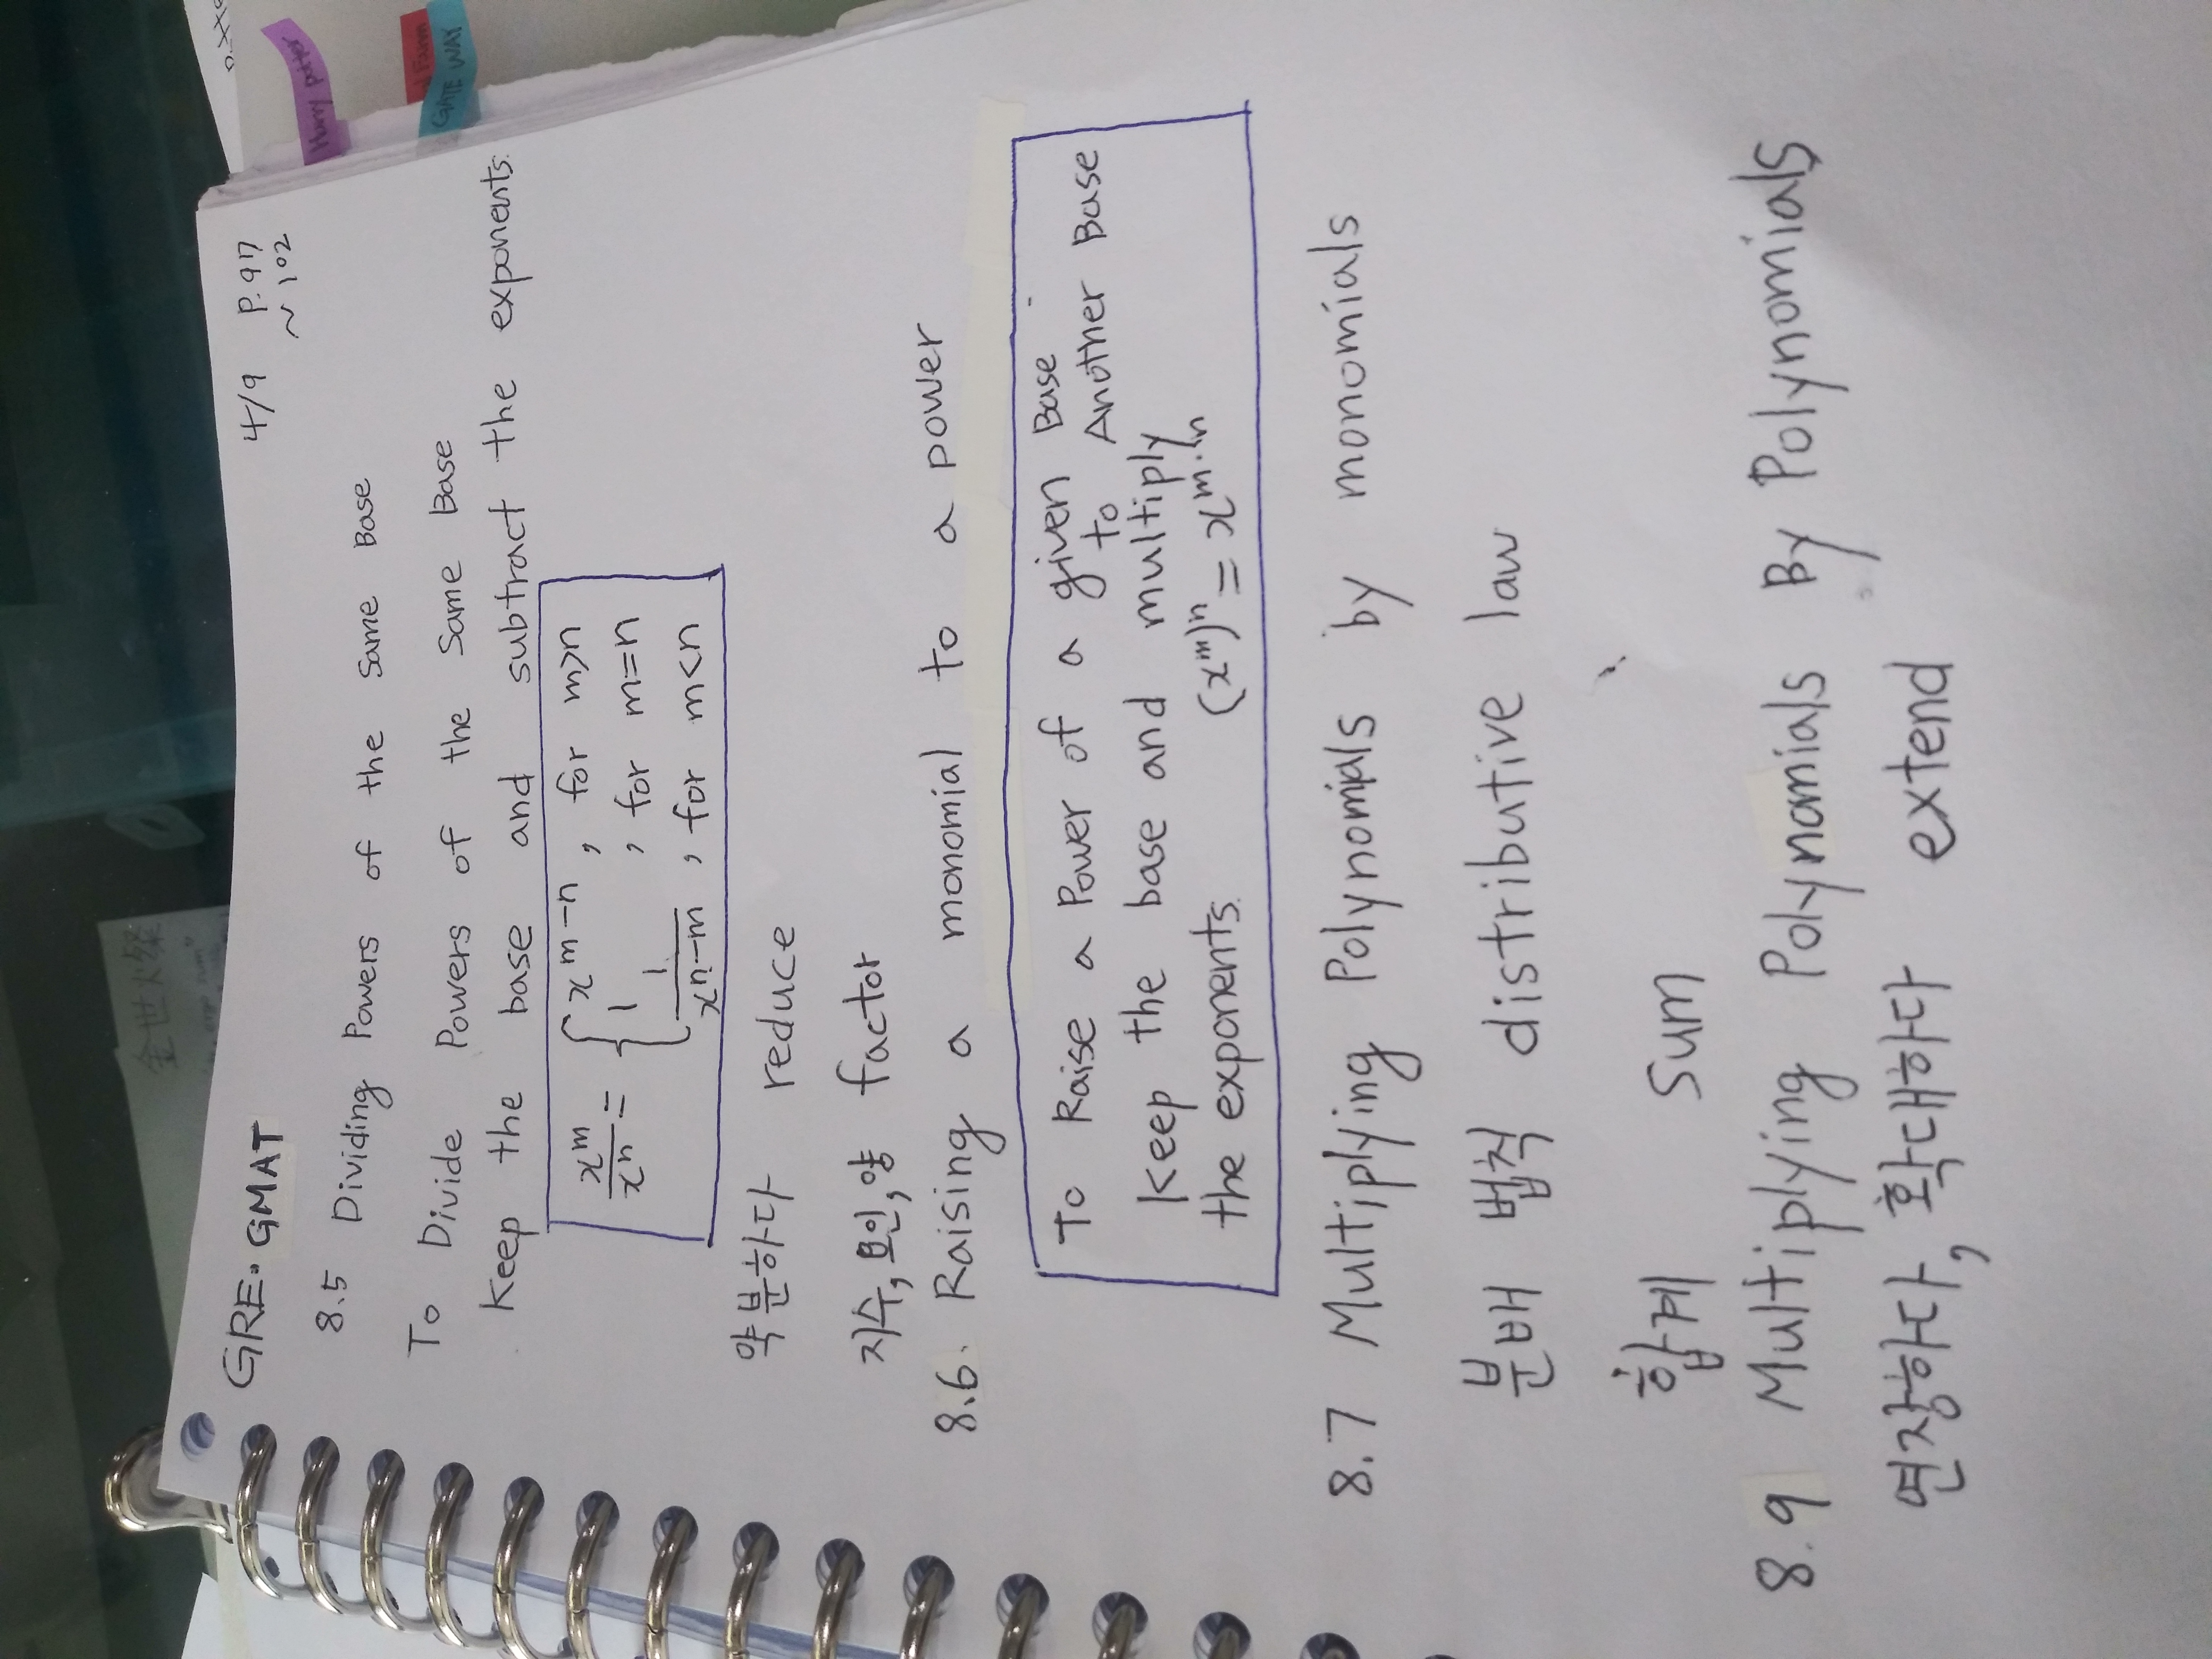 Harry potter
Farm
GATE WAY
金世火燦
GRE·GMAT 4/9 P.97
~102
8.5 Dividing Powers of the Same Base
To Divide Powers of the Same Base
Keep the base and subtract the exponents.
x^m/x^n = { x^(m-n), for m>n
1, for m=n
1/x^(n-m), for m<n
약분하다 reduce
지수, 요인, 양 factor
8.6. Raising a monomial to a power
To Raise a Power of a given Base
to Another Base
Keep the base and multiply
the exponents. (x^m)^n = x^(m·n)
8.7 Multiplying Polynomials by monomials
분배 법칙 distributive law
합계 Sum
8.9 Multiplying Polynomials By Polynomials
연장하다, 확대하다 extend